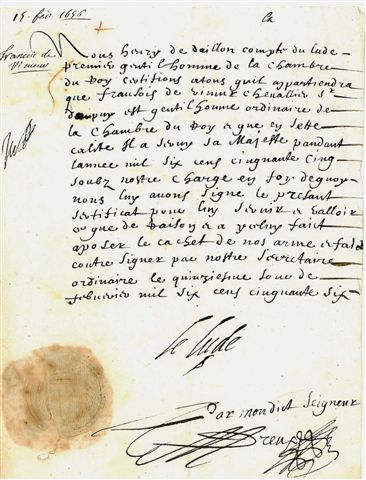 15. fév 1656
françois de
Vimeur
Nous henry de daillon compte du lude
premier gentilhomme de la chambre
du Roy certifions atous quil appartiendra
que fransois de vimur chevallier sr
danpuy est gentilhomme ordinaire de
la chambre du Roy e que en sette
calité Il a servy sa Majesté pandant
lannee mil six cens cinquante cinq
soubz nostre charge en foy dequoy
nous luy avons signe le presant
sertificat pour luy servir e valloir
ce que de Raison e a ycelny fait
aposer le cachet de nos arme e fait
contre signer par nostre secretaire
ordinaire le quinziesme Jour de
feburier mil six cens cinquante six
le lude
Par mondict Seigneur